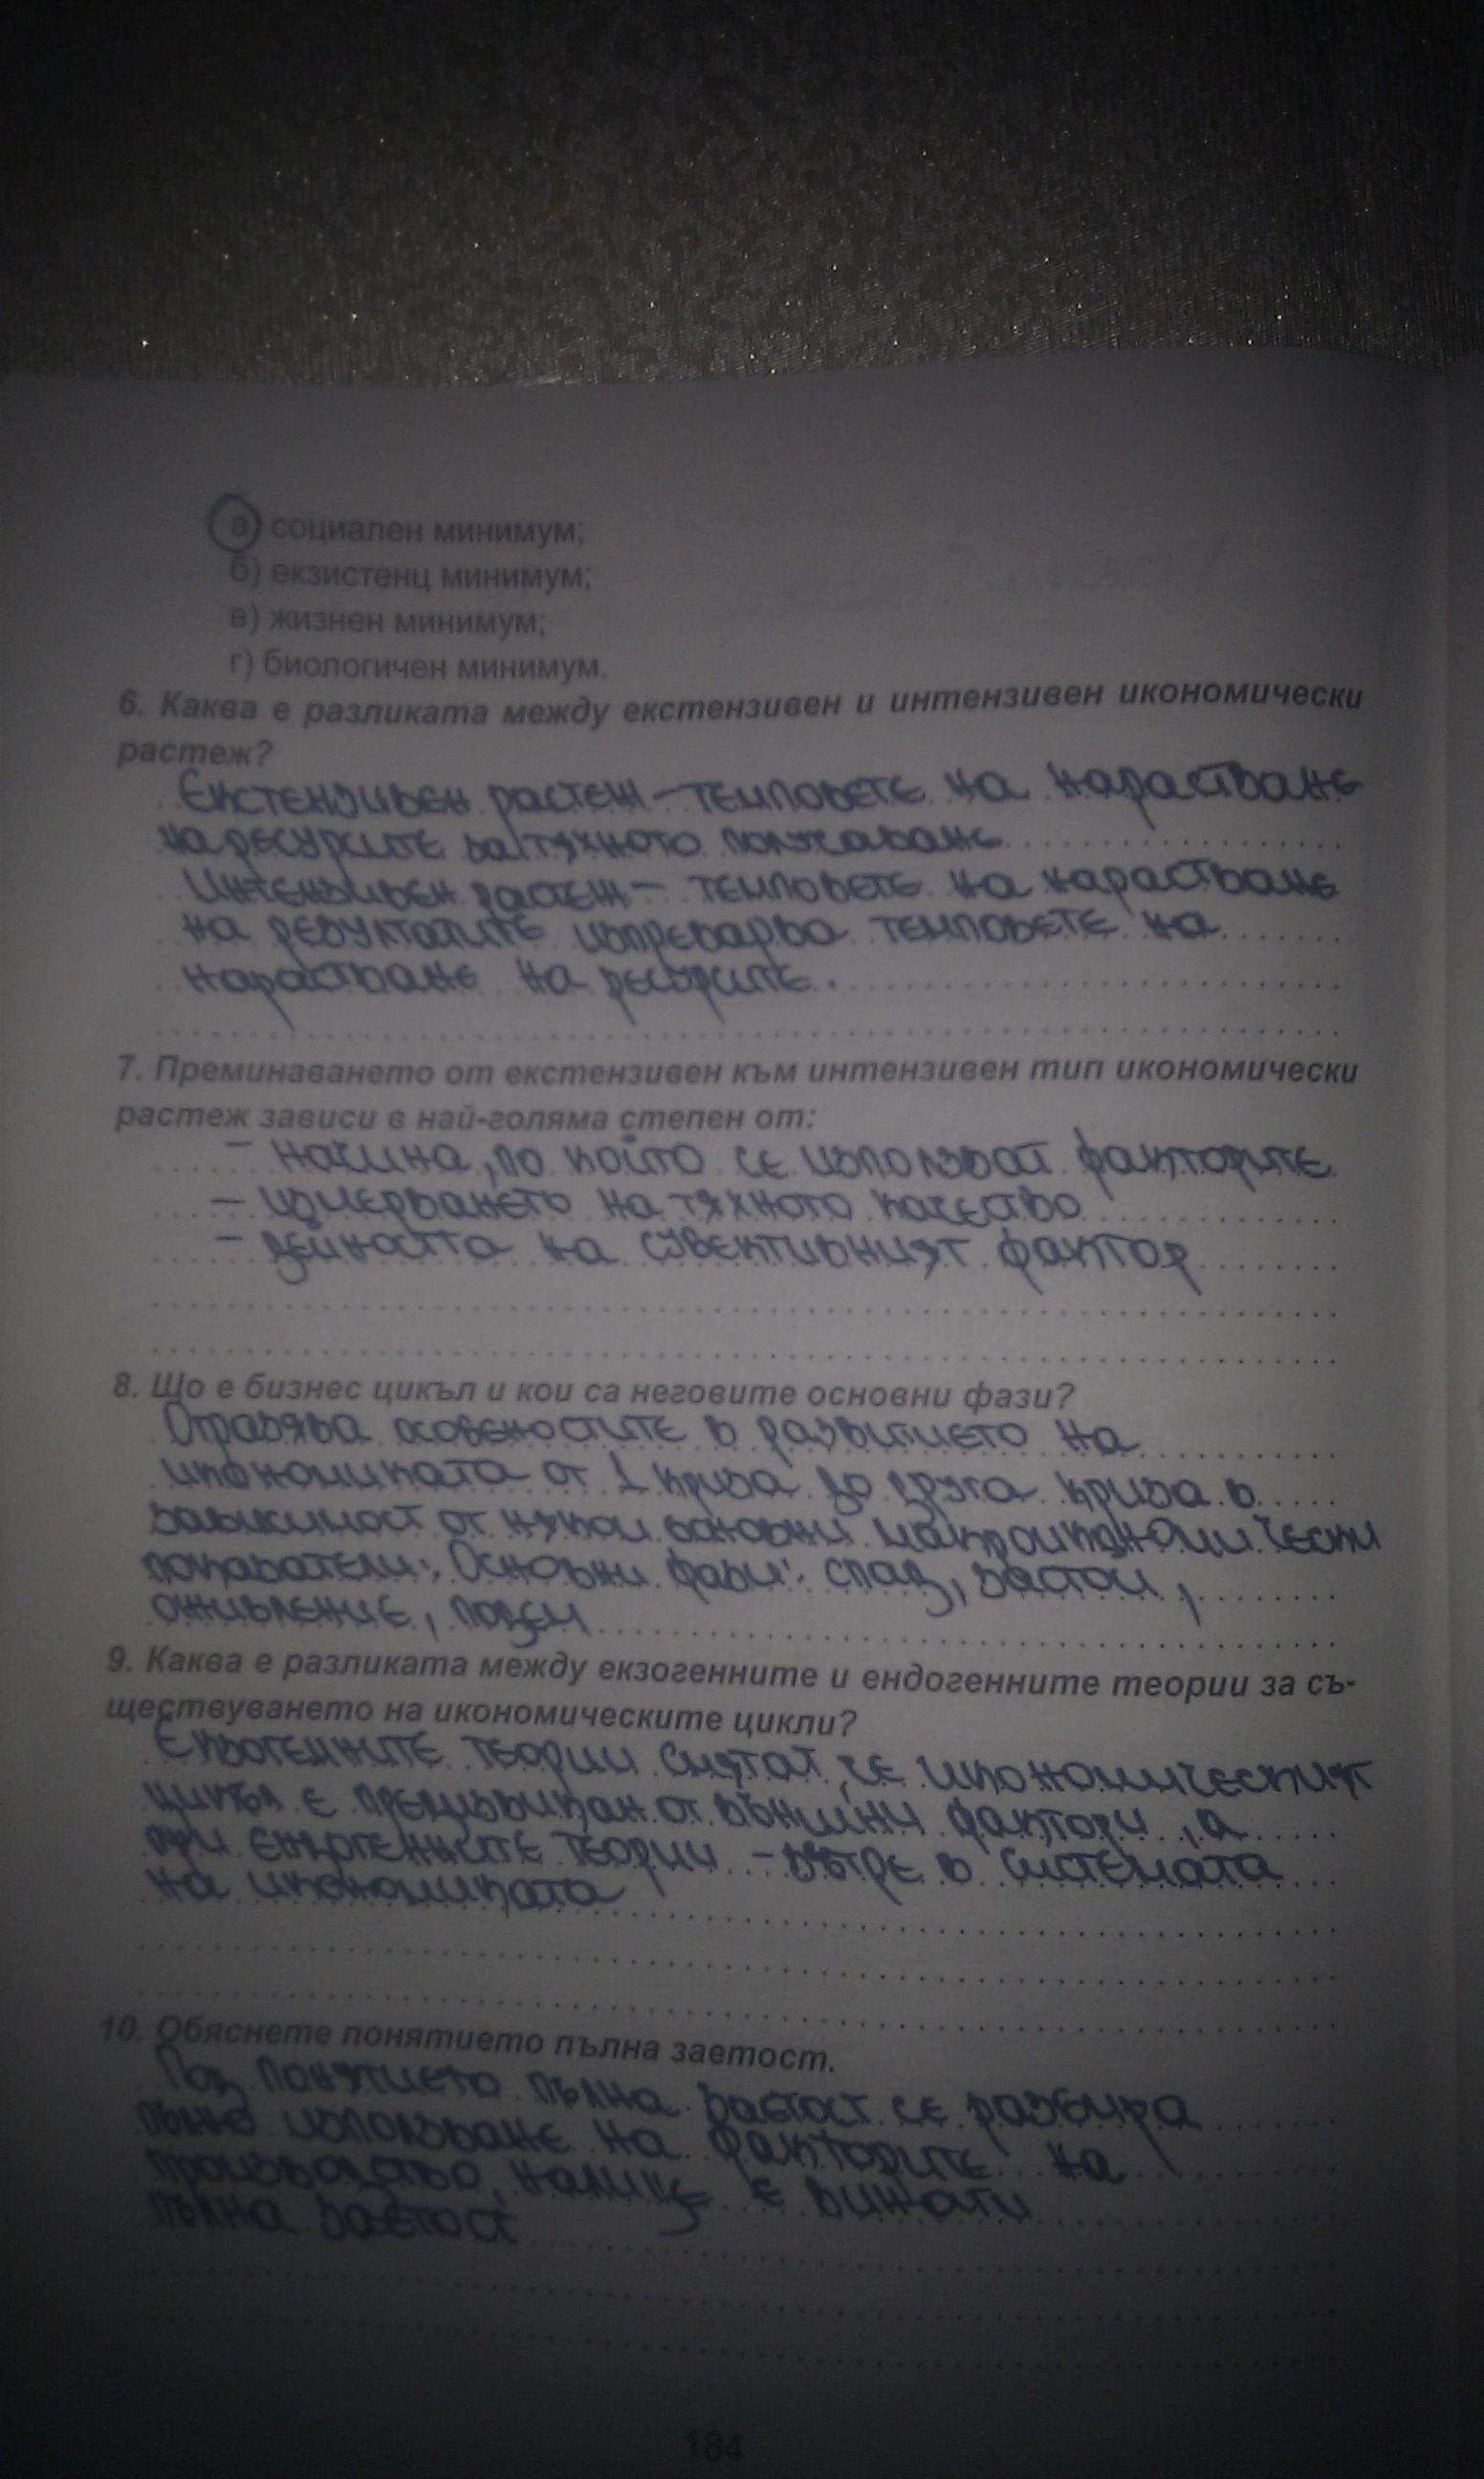 а) социален минимум;
б) екзистенц минимум;
в) жизнен минимум;
г) биологичен минимум.
6. Каква е разликата между екстензивен и интензивен икономически
растеж?
Екстензивен растеж - темповете на нарастване
на ресурсите за тяхното получаване
Интензивен растеж - темповете на нарастване
на резултатите изпреварва темповете на
нарастване на ресурсите.
7. Преминаването от екстензивен към интензивен тип икономически
растеж зависи в най-голяма степен от:
- начина, по който се използват факторите
- измерването на тяхното качество
- дейността на субективният фактор
8. Що е бизнес цикъл и кои са неговите основни фази?
Отразява особеностите в развитието на
икономиката от 1 криза до друга криза в
зависимост от някои основни макроикономически
показатели. Основни фази: спад, застои,
оживление, подем
9. Каква е разликата между екзогенните и ендогенните теории за съ-
ществуването на икономическите цикли?
Екзогенните теории смятат, че икономическият
цикъл е предизвикан от външни фактори, а
при ендогенните теории - вътре в системата
на икономиката
10. Обяснете понятието пълна заетост.
Под понятието пълна заетост се разбира
пълно използване на факторите на
производство, налице е винаги
пълна заетост
184